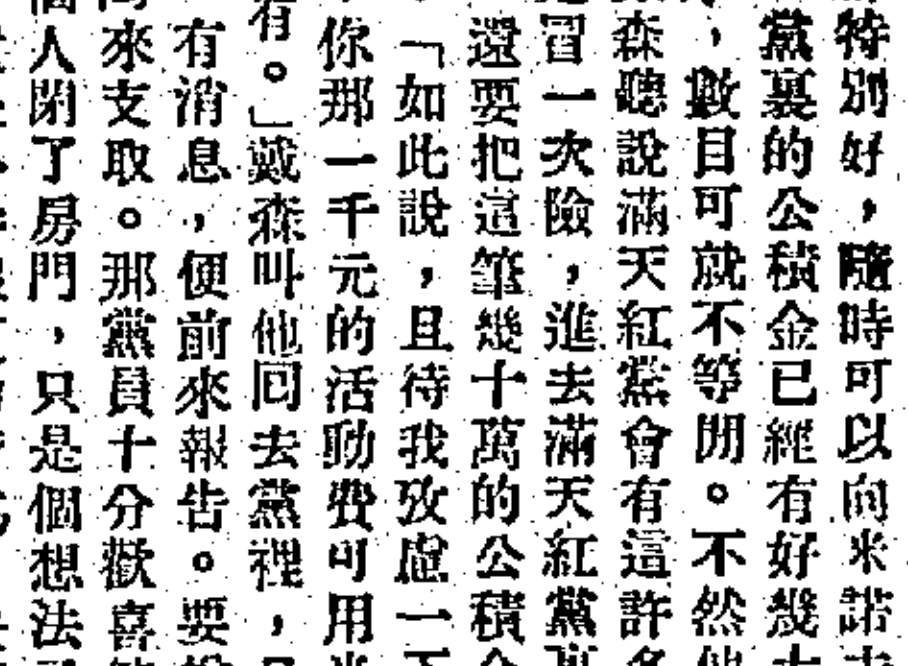 特別好，隨時可以向米諾
黨裏的公積金已經有好幾
，數目可就不等閒。不然他
森聽說滿天紅黨會有這許多
冒一次險，進去滿天紅黨裏
還要把這筆幾十萬的公積
「如此說，且待我攷慮一下
你那一千元的活動費可用
有。」戴森叫他回去黨裡，
有消息，便前來報告。要
來支取。那黨員十分歡喜
個人閉了房門，只是個想法